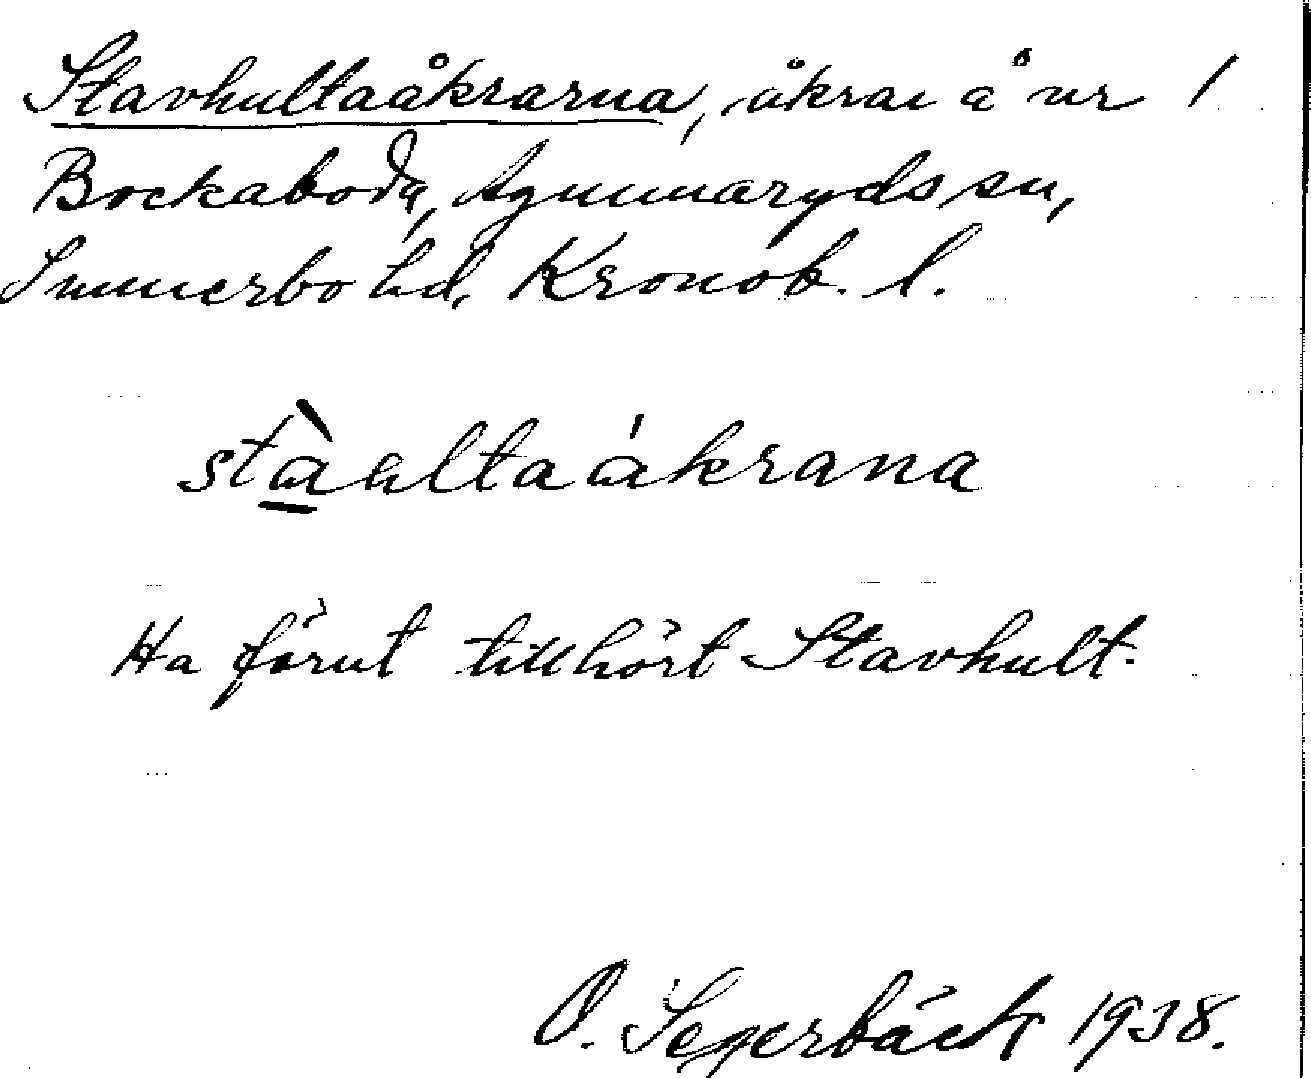 Stavhultaåkrarna, åkrar å nr 1
Bockaboda, Agunnaryds sn,
Sunnerbo hd, Kronob. l.
Ha förut tillhört Stavhult.
O. Segerbäck 1938.